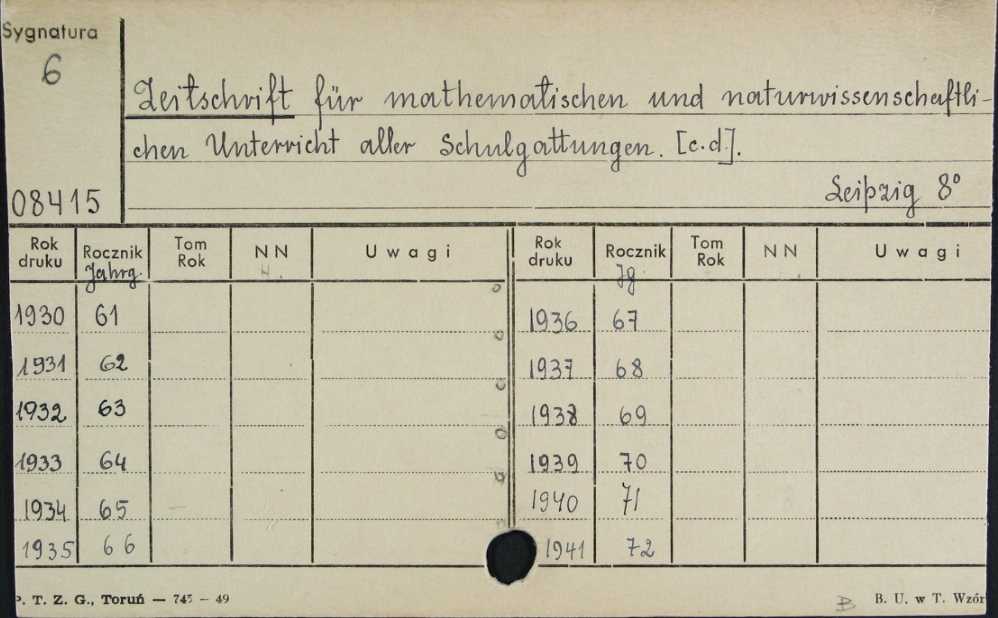 Sygnatura
6
Zeitschrift für mathematischen und naturwissenschaftli-
chen Unterricht aller Schulgattungen. [c.d.].
08415
Leipzig 8°
Rok druku Rocznik Tom Rok NN Uwagi Rok druku Rocznik Tom Rok NN Uwagi
Jahrg. Jg.
1930 61 1936 67
1931 62 1937 68
1932 63 1938 69
1933 64 1939 70
1934 65 1940 71
1935 66 1941 72
P. T. Z. G., Toruń — 745 — 49 B B. U. w T. Wzór